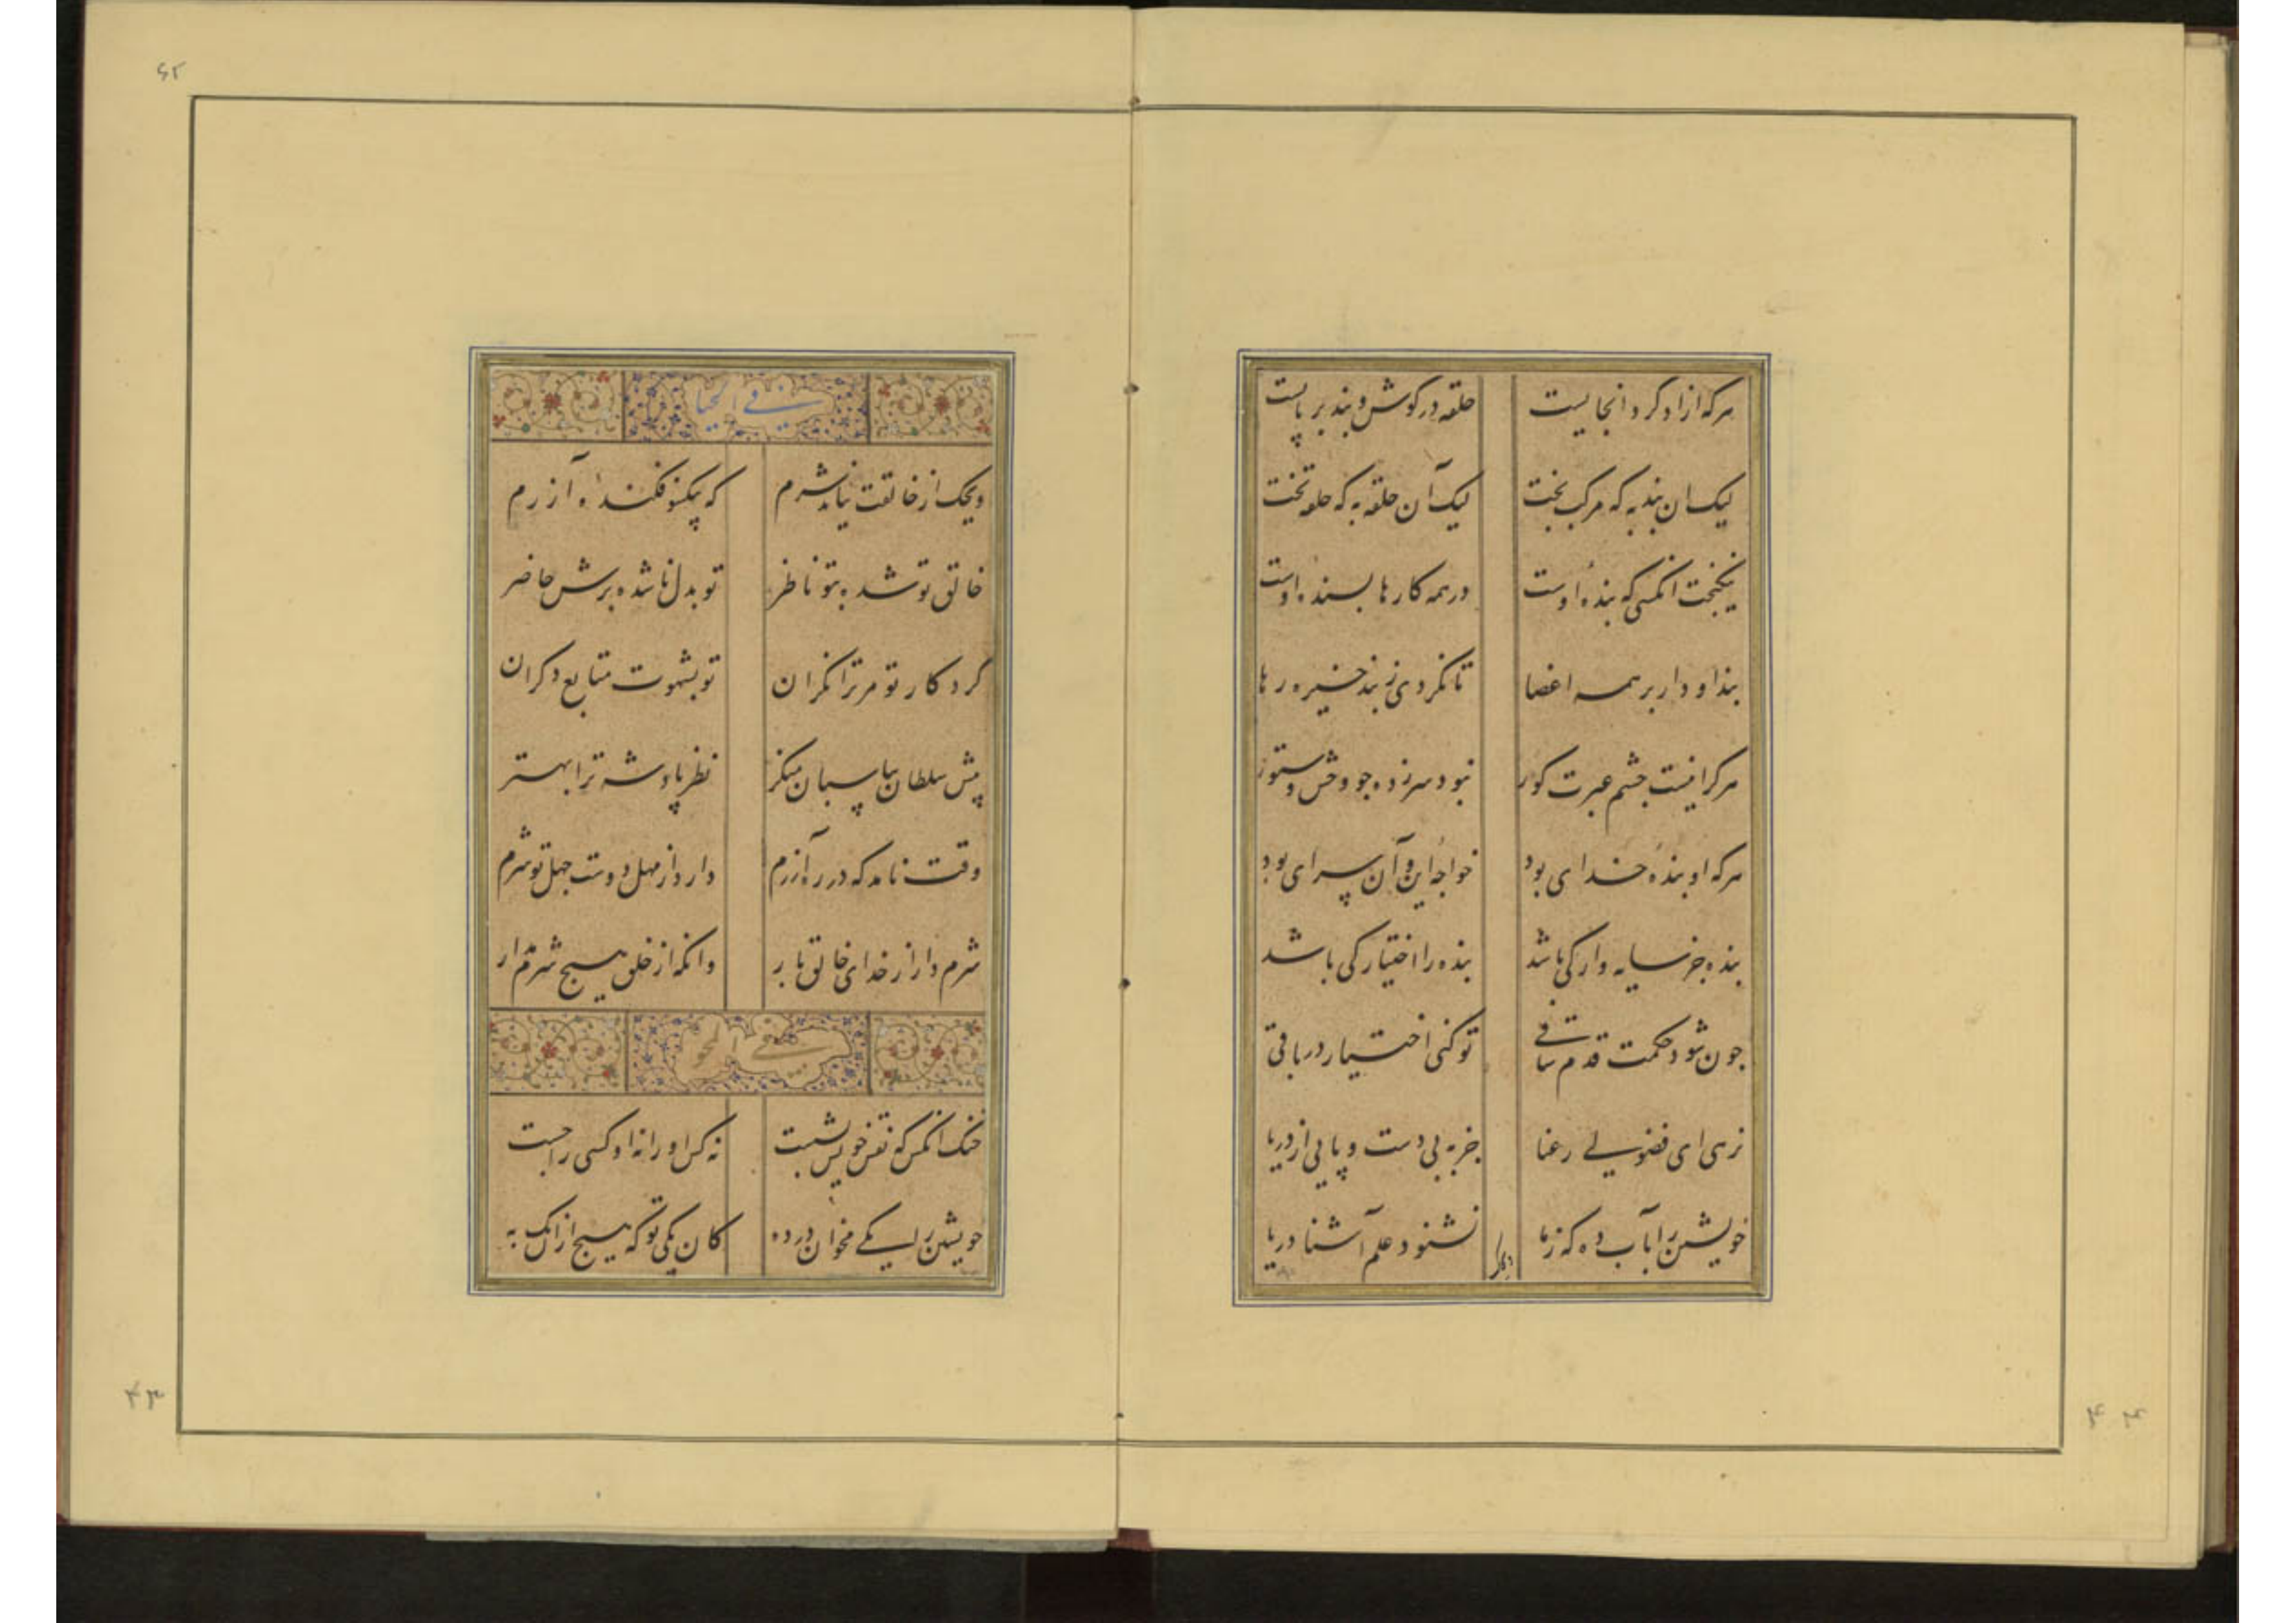 هرکه ازاد کرد انجا یست حلقه در کوش و بند بر پایست
لیک ان بند به که مرکب بخت لیک آن حلقه به که حلقه تخت
نیکبخت انکسی که بنده اوست در همه کارها بسنده اوست
بند او دار بر همه اعضا تا نکردی ز بند خیره رها
هرکرا نیست چشم عبرت کور نبود سرزده جو وحش و ستور
هرکه او بنده خدای بود خواجه این و آن سرای بود
بنده جز سایه وار کی باشد بنده را اختیار کی باشد
جون شود حکمت قدم ساقی تو کنی اختیار در باقی
نرهی ای فضولی رعنا جز به بی دست و پایی از دریا
خویشتن را بآب ده که ز ما نشنود علم آشنا دریا
فی الحیا
ویحک از خالقت نیاید شرم که بیکسو فکنده آزرم
خالق تو شده بتو ناظر تو بدل ناشده برش حاضر
کردکار تو مر ترا نکران تو بشهوت متابع دکران
پیش سلطان بپاسبان منکر نظر پادشه ترا بهتر
وقت نامد که در ره آزرم دارد از مهل دوست جهل تو شرم
شرم دار از خدای خالق بار وانکه از خلق هیچ شرم مدار
فی المحو
خنک انکس که نقش خویش بشست نه کس او را نه او کسی را جست
خویشتن را یکی مخوان در ده کان یکی تو که هیچ ازانک به
۶۲
۴۳
۴۴